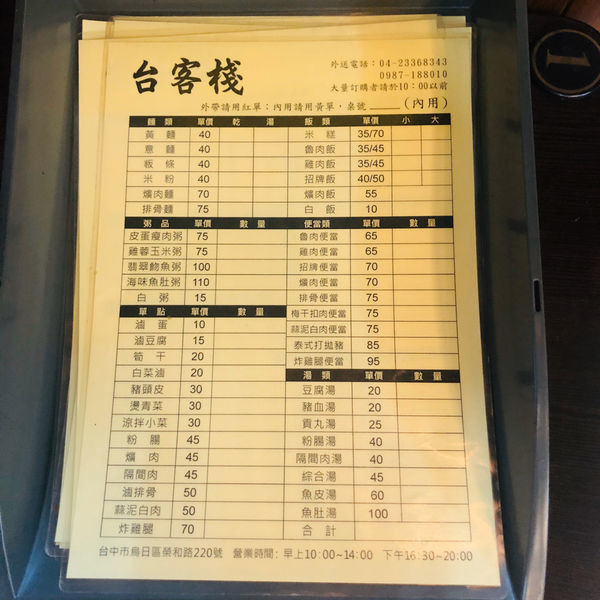 台客棧
外送電話：04-23368343
0987-188010
大量訂購者請於10：00以前
外帶請用紅單；內用請用黃單，桌號_____(內用)
麵類 單價 乾 湯
黃麵 40
意麵 40
粄條 40
米粉 40
爌肉麵 70
排骨麵 75
粥品 單價 數量
皮蛋瘦肉粥 75
雞蓉玉米粥 75
翡翠魩魚粥 100
海味魚肚粥 110
白粥 15
單點 單價 數量
滷蛋 10
滷豆腐 15
筍干 20
白菜滷 20
豬頭皮 30
燙青菜 30
涼拌小菜 30
粉腸 45
爌肉 45
隔間肉 45
滷排骨 50
蒜泥白肉 50
炸雞腿 70
飯類 單價 小 大
米糕 35/70
魯肉飯 35/45
雞肉飯 35/45
招牌飯 40/50
爌肉飯 55
白飯 10
便當類 單價 數量
魯肉便當 65
雞肉便當 65
招牌便當 70
爌肉便當 70
排骨便當 75
梅干扣肉便當 75
蒜泥白肉便當 75
泰式打拋豬 85
炸雞腿便當 95
湯類 單價 數量
豆腐湯 20
豬血湯 20
貢丸湯 25
粉腸湯 40
隔間肉湯 40
綜合湯 45
魚皮湯 60
魚肚湯 100
合計
台中市烏日區榮和路220號 營業時間：早上10:00~14:00 下午16:30~20:00
1